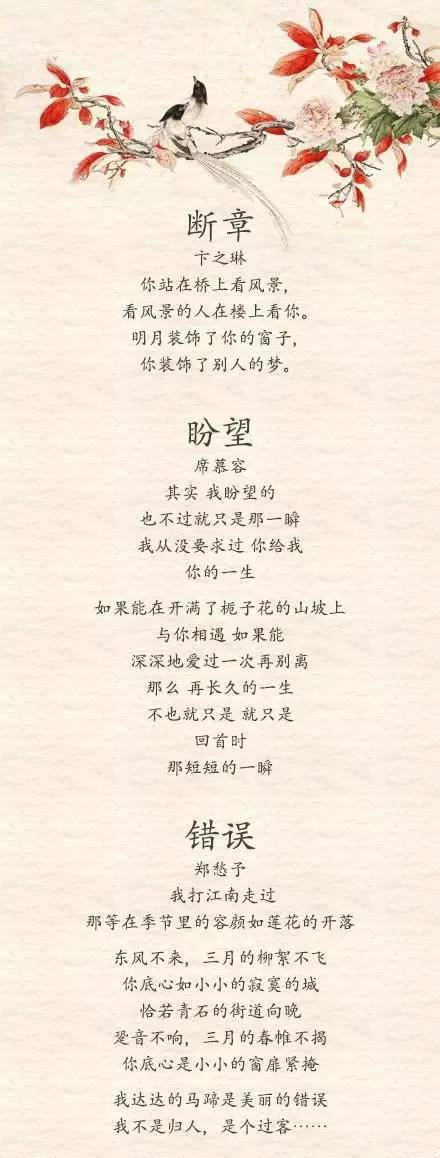 断章
卞之琳
你站在桥上看风景，
看风景的人在楼上看你。
明月装饰了你的窗子，
你装饰了别人的梦。
盼望
席慕容
其实 我盼望的
也不过就只是那一瞬
我从没要求过 你给我
你的一生
如果能在开满了栀子花的山坡上
与你相遇 如果能
深深地爱过一次再别离
那么 再长久的一生
不也就只是 就只是
回首时
那短短的一瞬
错误
郑愁予
我打江南走过
那等在季节里的容颜如莲花的开落
东风不来，三月的柳絮不飞
你底心如小小的寂寞的城
恰若青石的街道向晚
跫音不响，三月的春帷不揭
你底心是小小的窗扉紧掩
我达达的马蹄是美丽的错误
我不是归人，是个过客……